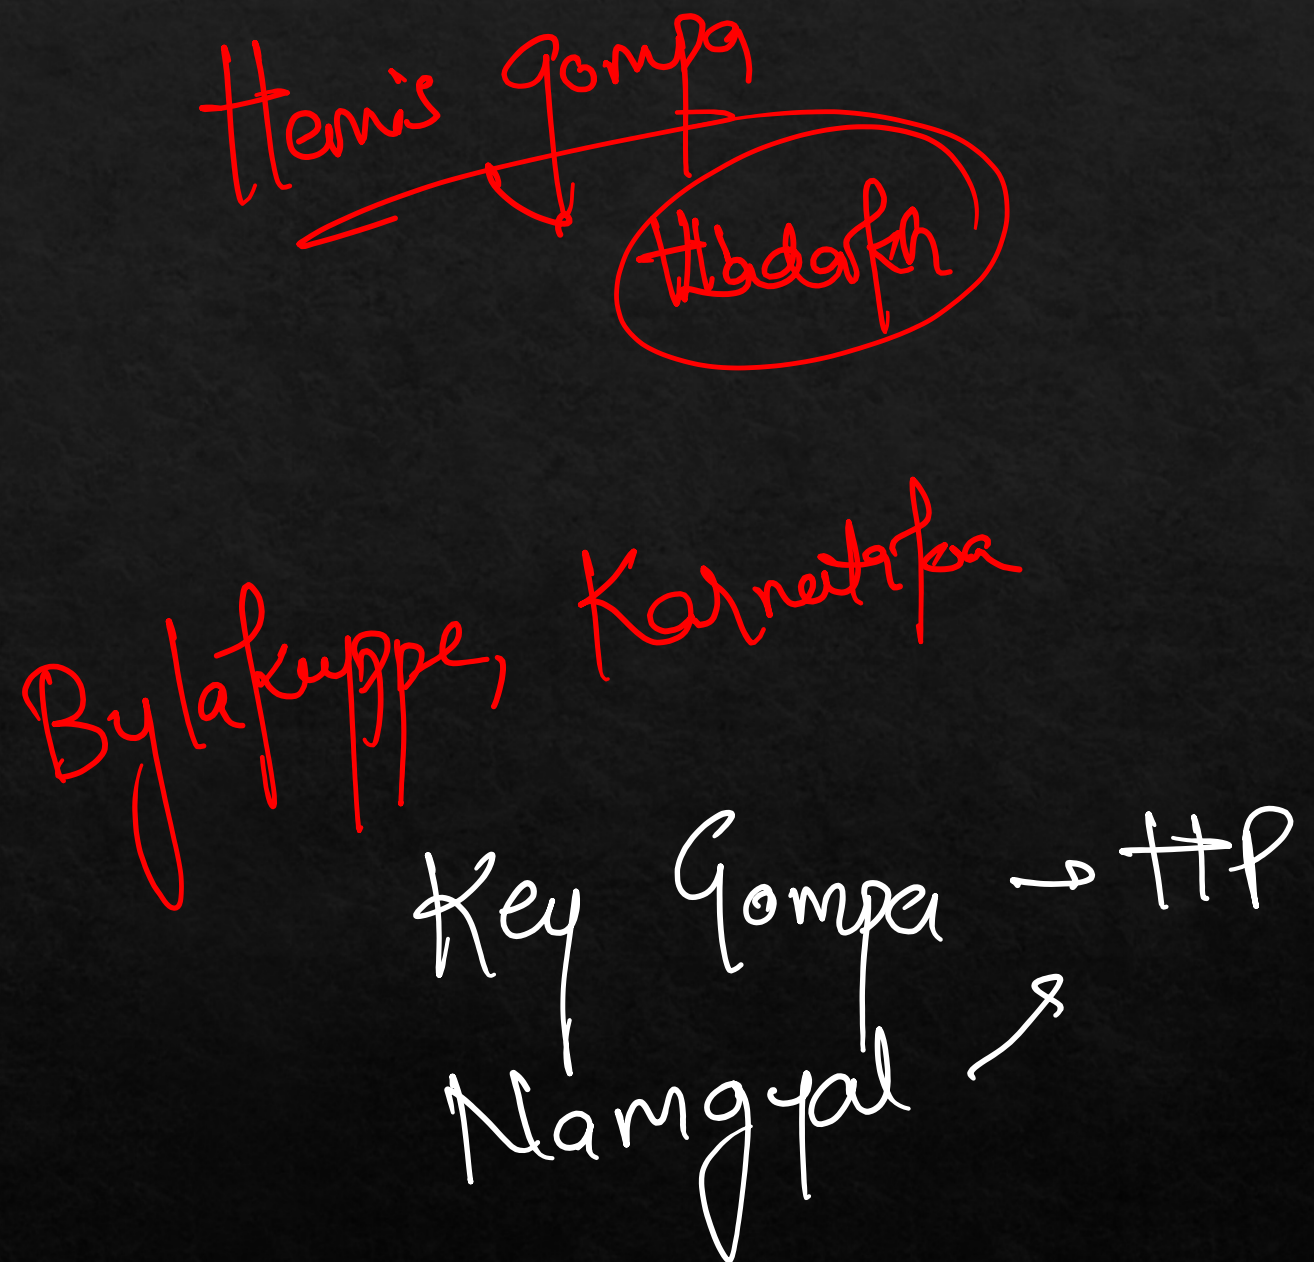 Hemis Gompa
Ladakh
Bylakuppe, Karnataka
Key Gompa → HP
Namgyal ↗